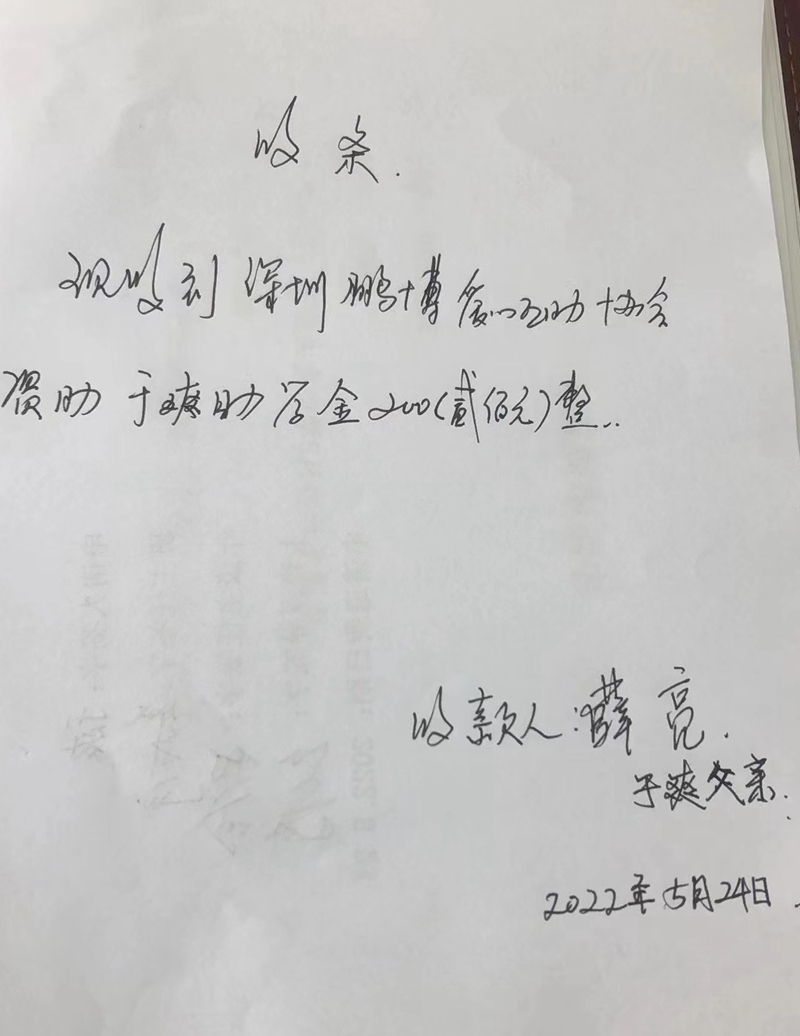 收条.
现收到深圳鹏博爱心互助协会
资助于爽助学金200(贰佰元)整..
收款人:薛亮.
于爽父亲.
2022年5月24日